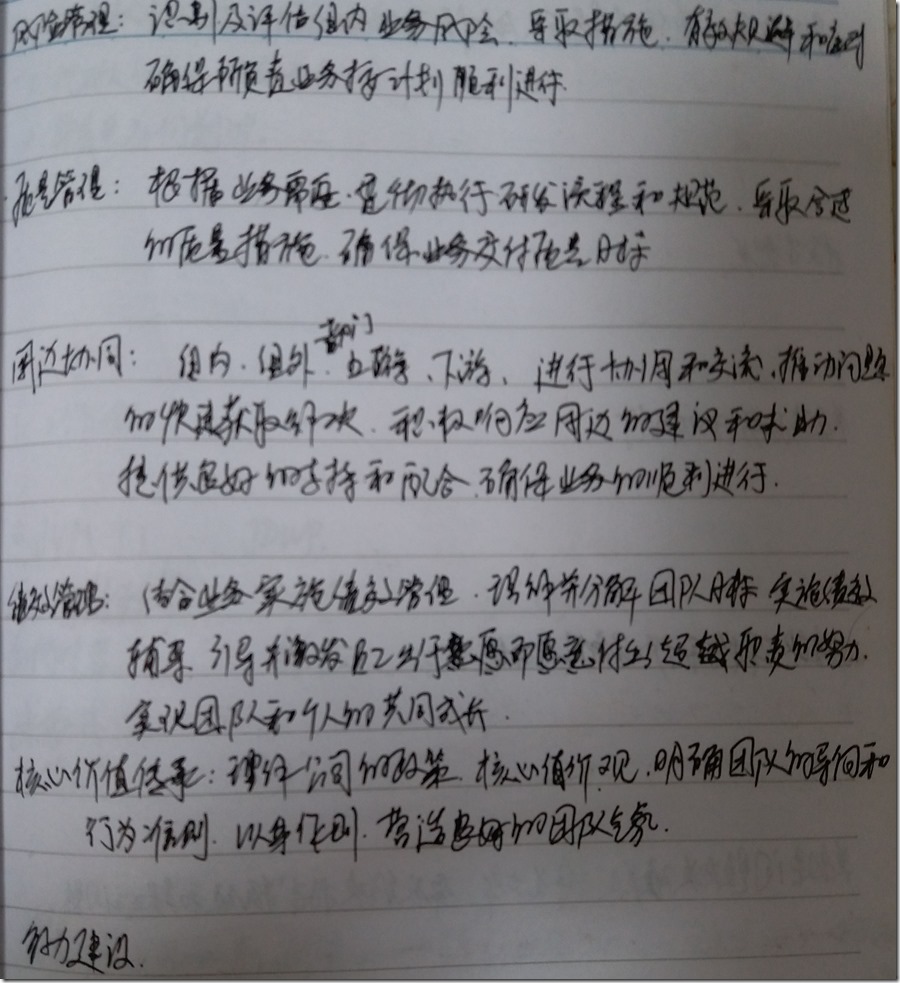 风险管理：识别及评估组内业务风险、采取措施、有效规避和应对
确保所负责业务按计划顺利进行.
质量管理：根据业务需要、贯彻执行研发流程和规范、采取合适
的质量措施、确保业务交付质量目标
部门
周边协同：组内、组外、上游、下游、进行协同和交流、推动问题
的快速获取解决、积极响应周边的建议和求助.
提供良好的支持和配合、确保业务的顺利进行.
绩效管理：结合业务实施绩效管理、理解并分解团队目标 实施绩效
辅导 引导并激发员工出于意愿而愿意付出超越职责的努力.
实现团队和个人的共同成长.
核心价值传承：理解公司的政策、核心价值观、明确团队的导向和
行为准则、以身作则、营造良好的团队气氛.
能力建设.